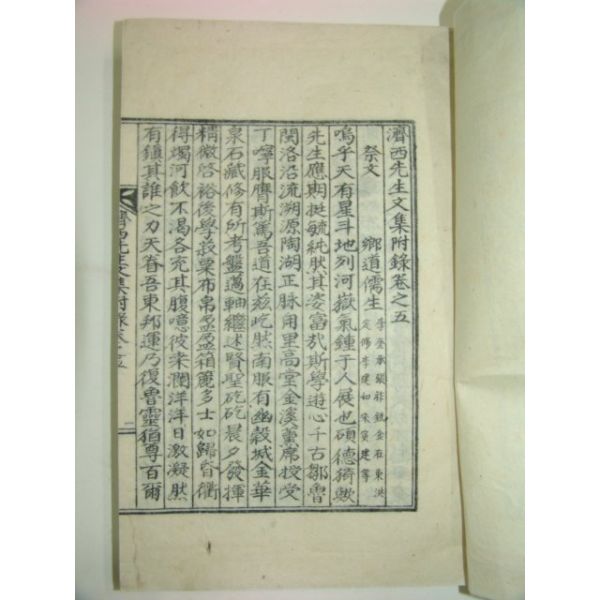 濟西先生文集附錄卷之五
祭文　鄉道儒生
嗚乎天有星斗地列河嶽氣鍾于人展也碩德猗歟
先生應期挺毓純然其姿富哉斯學遊心千古鄒魯
閩洛沿流溯源陶湖正脉用里高堂金溪薰席授受
丁寧服膺斯篤吾道在玆屹然南服有幽穀城金華
泉石藏修有所考盤薖軸繼述賢聖矻矻晨夕發揮
精微啓裕後學菽粟布帛盈盈箱簏多士如歸昏衢
得燭河飮不渴各充其腹噫彼柒瀾洋洋日激凝然
有鎭其誰之力天眷吾東邦運乃復魯靈猶尊百爾